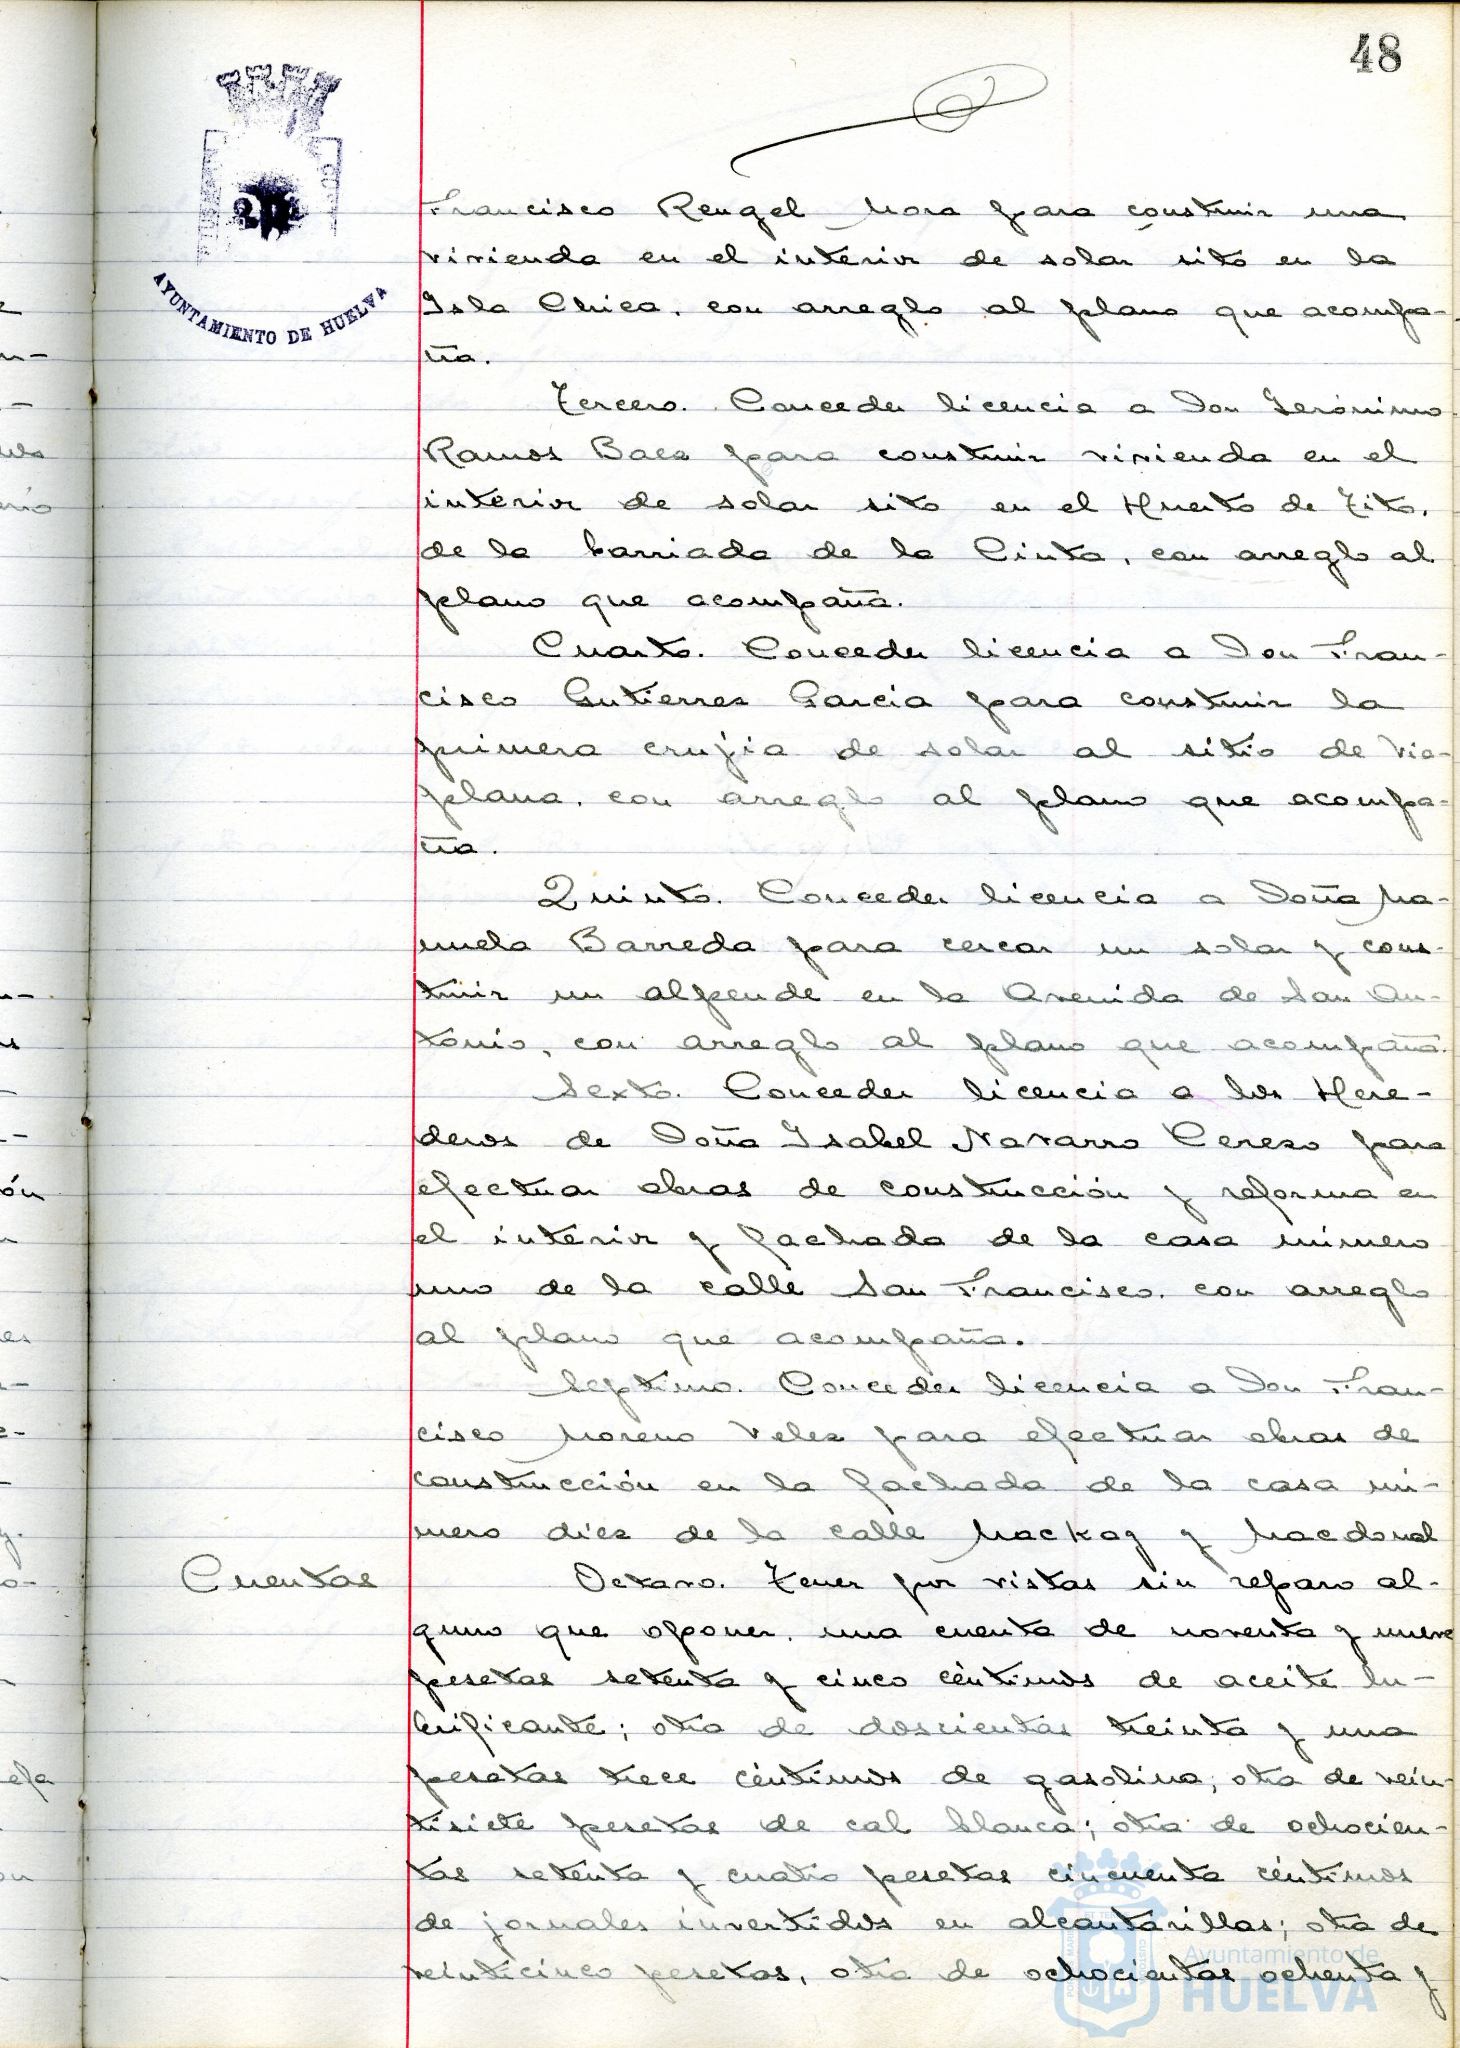 48
AYUNTAMIENTO DE HUELVA
Francisco Rengel Mora para construir una
vivienda en el interior de solar sito en la
Isla Chica, con arreglo al plano que acompa-
ña.
Tercero. Conceder licencia a Don Gerónimo
Ramos Baez para construir vivienda en el
interior de solar sito en el Huerto de Tito,
de la barriada de la Cinta, con arreglo al
plano que acompaña.
Cuarto. Conceder licencia a Don Fran-
cisco Gutierrez Garcia para construir la
primera crujia de solar al sitio de Via-
plana, con arreglo al plano que acompa-
ña.
Quinto. Conceder licencia a Doña Ma-
nuela Barreda para cercar un solar y cons-
truir un alpende en la Avenida de San An-
tonio, con arreglo al plano que acompaña.
Sexto. Conceder licencia a los Here-
deros de Doña Isabel Navarro Cerezo para
efectuar obras de construcción y reforma en
el interior y fachada de la casa número
uno de la calle San Francisco, con arreglo
al plano que acompaña.
Septimo. Conceder licencia a Don Fran-
cisco Moreno Velez para efectuar obras de
construcción en la fachada de la casa nú-
mero diez de la calle Mackay y Macdonal
Cuentas
Octavo. Tener por vistas sin reparo al-
guno que oponer, una cuenta de noventa y nueve
pesetas setenta y cinco céntimos de aceite lu-
brificante; otra de doscientas treinta y una
pesetas trece céntimos de gasolina; otra de vein-
tisiete pesetas de cal blanca; otra de ochocien-
tas setenta y cuatro pesetas cincuenta céntimos
de jornales invertidos en alcantarillas; otra de
veinticinco pesetas, otra de ochocientas ochenta y
Ayuntamiento de
HUELVA